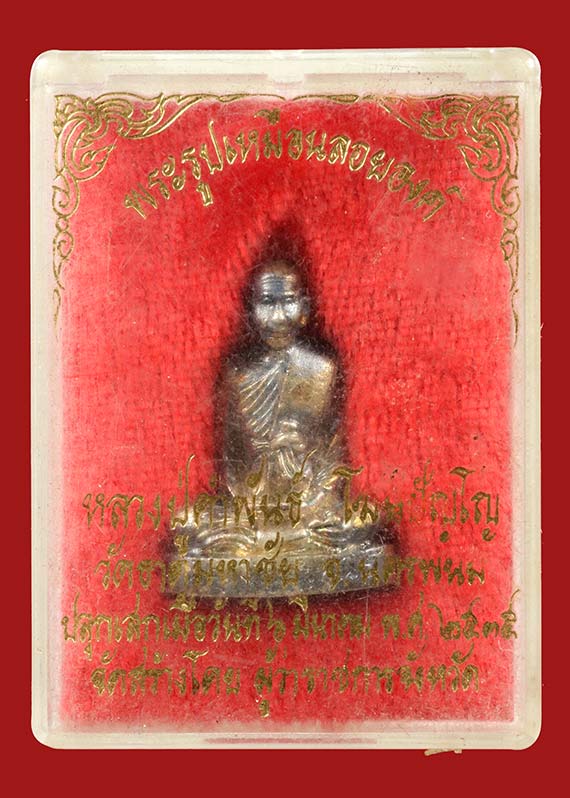 พระรูปเหมือนลอยองค์
หลวงปู่คำพันธ์ โฆษปัญโญ
วัดธาตุมหาชัย จ.นครพนม
ปลุกเสกเมื่อวันที่ ๖ มีนาคม พ.ศ. ๒๕๓๕
จัดสร้างโดย ผู้ว่าราชการจังหวัด